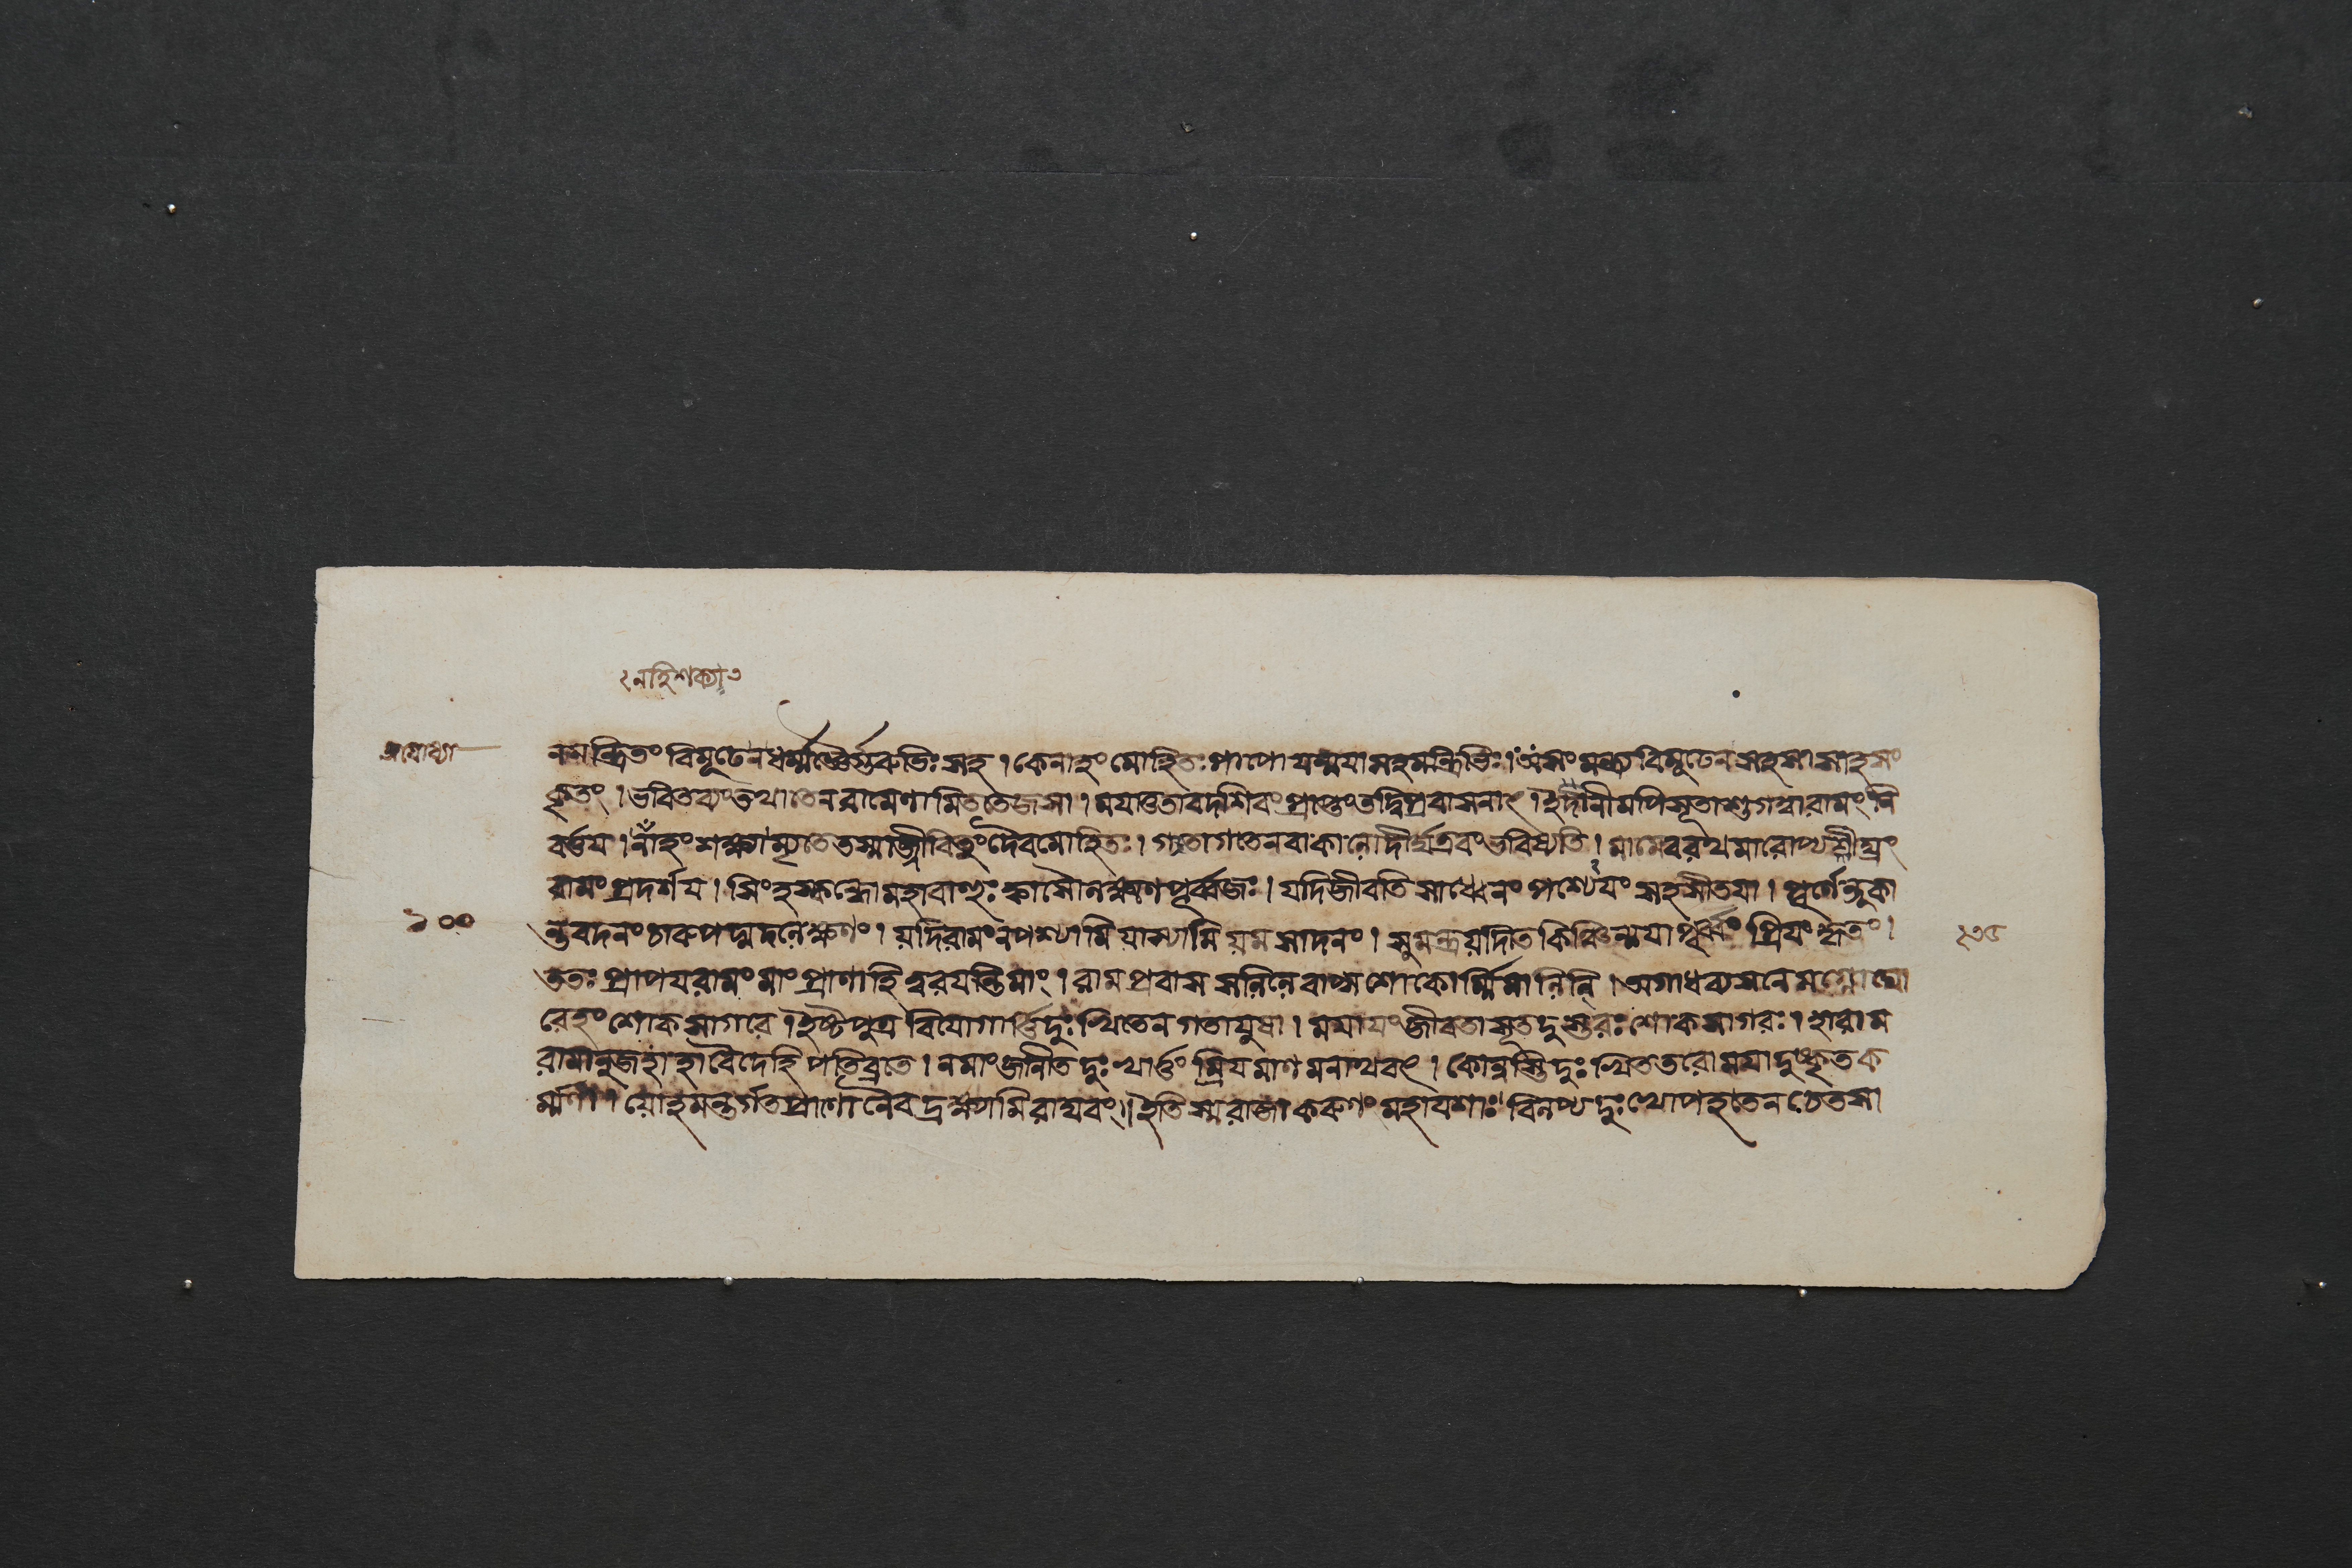 নহিশক্যা ৩
অযোধ্যা
নমন্ত্রিতং বিমূঢেন ধর্ম্মজ্ঞৈর্গুরুভিঃ সহ । কেনাহং মোহিতঃ পাপো যন্ময়া সহ মন্ত্রিভিঃ । অসংমন্ত্র্য বিমূঢেন সহসা সাহসং
কৃতং । ভবিতব্যং তথা তেন রামেণামিততেজসা । ময়া তাবদশিবং প্রাপ্তং তদ্বিপ্রবাসনাৎ । ইদানীমপি সূতাশু গত্বা রামং নি
বর্ত্তয় । নাহং শক্ষ্যাম্যৃতে তস্মাজ্জীবিতুং দৈবমোহিতঃ । গতাগতেন বা কালো দীর্ঘ এবং ভবিষ্যতি । মামেব রথমারোপ্য শীঘ্রং
রামং প্রদর্শয় । সিংহস্কন্ধো মহাবাহুঃ ক্বাসৌ লক্ষ্মণপূর্ব্বজঃ । যদি জীবতি সাধ্বেনং পশ্যেয়ং সহ সীতয়া । পূর্ণেন্দুকা
১০০
ন্তবদনং চারুপদ্মদলেক্ষণং । যদি রামং ন পশ্যামি যাস্যামি যমসাদনং । সুমন্ত্র যদি তে কিঞ্চিন্ময়া পূর্ব্বং প্রিয়ং কৃতং ।
ততঃ প্রাপয় রামং মাং প্রাণা হি ত্বরয়ন্তি মাং । রামপ্রবাসসলিলে বাষ্পশোকোর্ম্মিমালিনি । অগাধব্যসনে মগ্নো ঘো
রেহং শোকসাগরে । ইষ্টপুত্রবিয়োগার্ত্তিদুঃখিতেন গতায়ুষা । মমায়ং জীবতা সূত দুস্তরঃ শোকসাগরঃ । হা রাম
রামানুজ হা হা বৈদেহি পতিব্রতে । ন মাং জানীত দুঃখার্ত্তং ম্রিয়মাণমনাথবৎ । কোন্বস্তি দুঃখিততরো ময়া দুষ্কৃতক
র্ম্মণা । যোহমন্তর্গতপ্রাণো নৈব দ্রক্ষ্যামি রাঘবং । ইতি স্ম রাজা করুণং মহাযশাঃ বিলপ্য দুঃখোপহতেন চেতসা